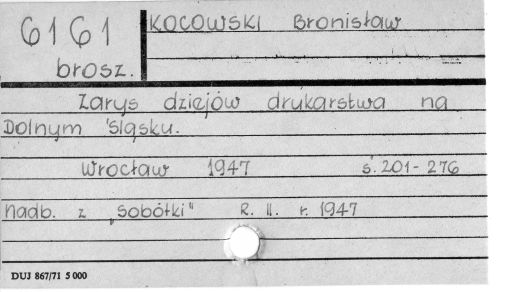 6161
brosz.
KOCOWSKI Bronisław
Zarys dziejów drukarstwa na
Dolnym Śląsku.
Wrocław 1947 s. 201-276
nadb. z „Sobótki" R. II. r. 1947
DUJ 867/71 5 000